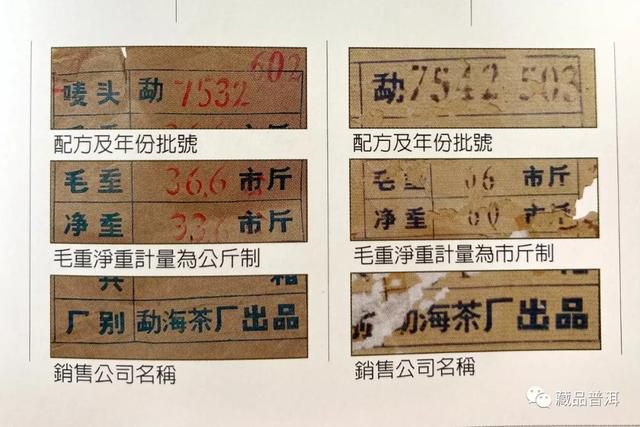 602
唛头 勐 7532
配方及年份批號
毛重 36.6 市斤
净重 33.6 市斤
毛重淨重計量為公斤制
厂别 勐海茶厂出品
銷售公司名稱
勐 7542 503
配方及年份批號
毛重 66 市斤
净重 60 市斤
毛重淨重計量為市斤制
勐海茶厂出品
銷售公司名稱
藏品普洱